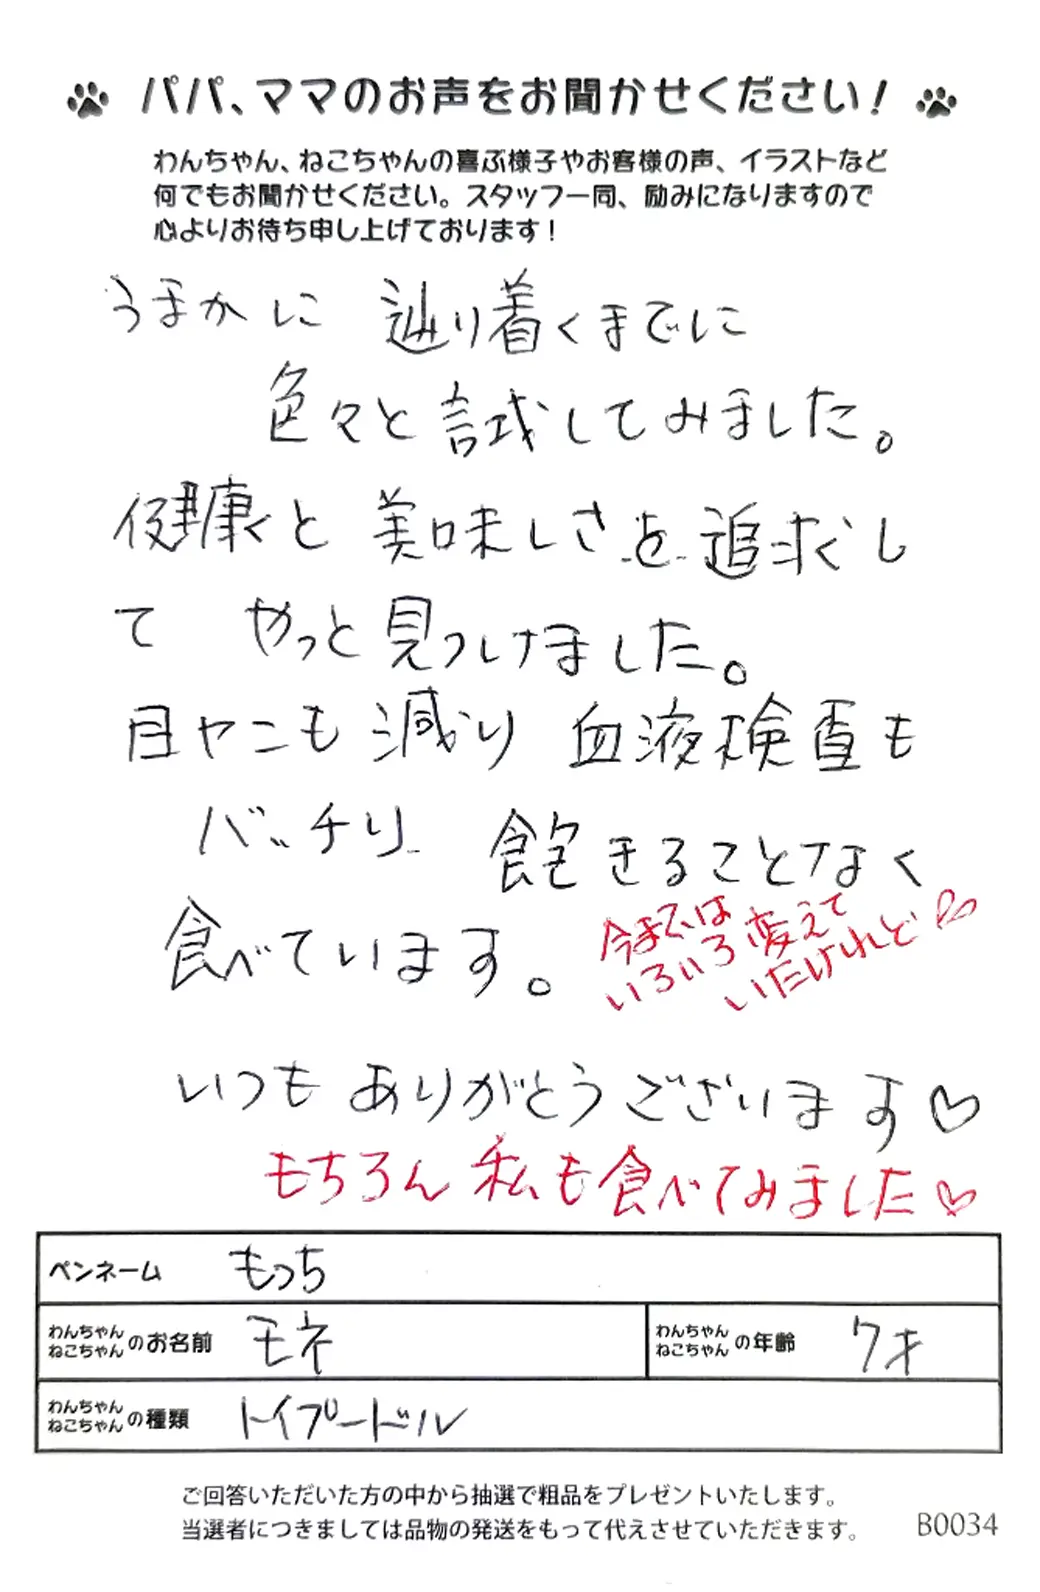 パパ、ママのお声をお聞かせください！
わんちゃん、ねこちゃんの喜ぶ様子やお客様の声、イラストなど
何でもお聞かせください。スタッフ一同、励みになりますので
心よりお待ち申し上げております！
うまか に 辿り着くまでに
色々と試してみました。
健康と美味しさを追求し
て やっと見つけました。
目ヤニも減り 血液検査も
バッチリ 飽きることなく
食べています。
今までは
いろいろ変えて
いたけれど♡
いつもありがとうございます♡
もちろん私も食べてみました♡
ペンネーム もっち
わんちゃん
ねこちゃん のお名前 モネ
わんちゃん
ねこちゃん の年齢 7才
わんちゃん
ねこちゃん の種類 トイプードル
ご回答いただいた方の中から抽選で粗品をプレゼントいたします。
当選者につきましては品物の発送をもって代えさせていただきます。
B0034